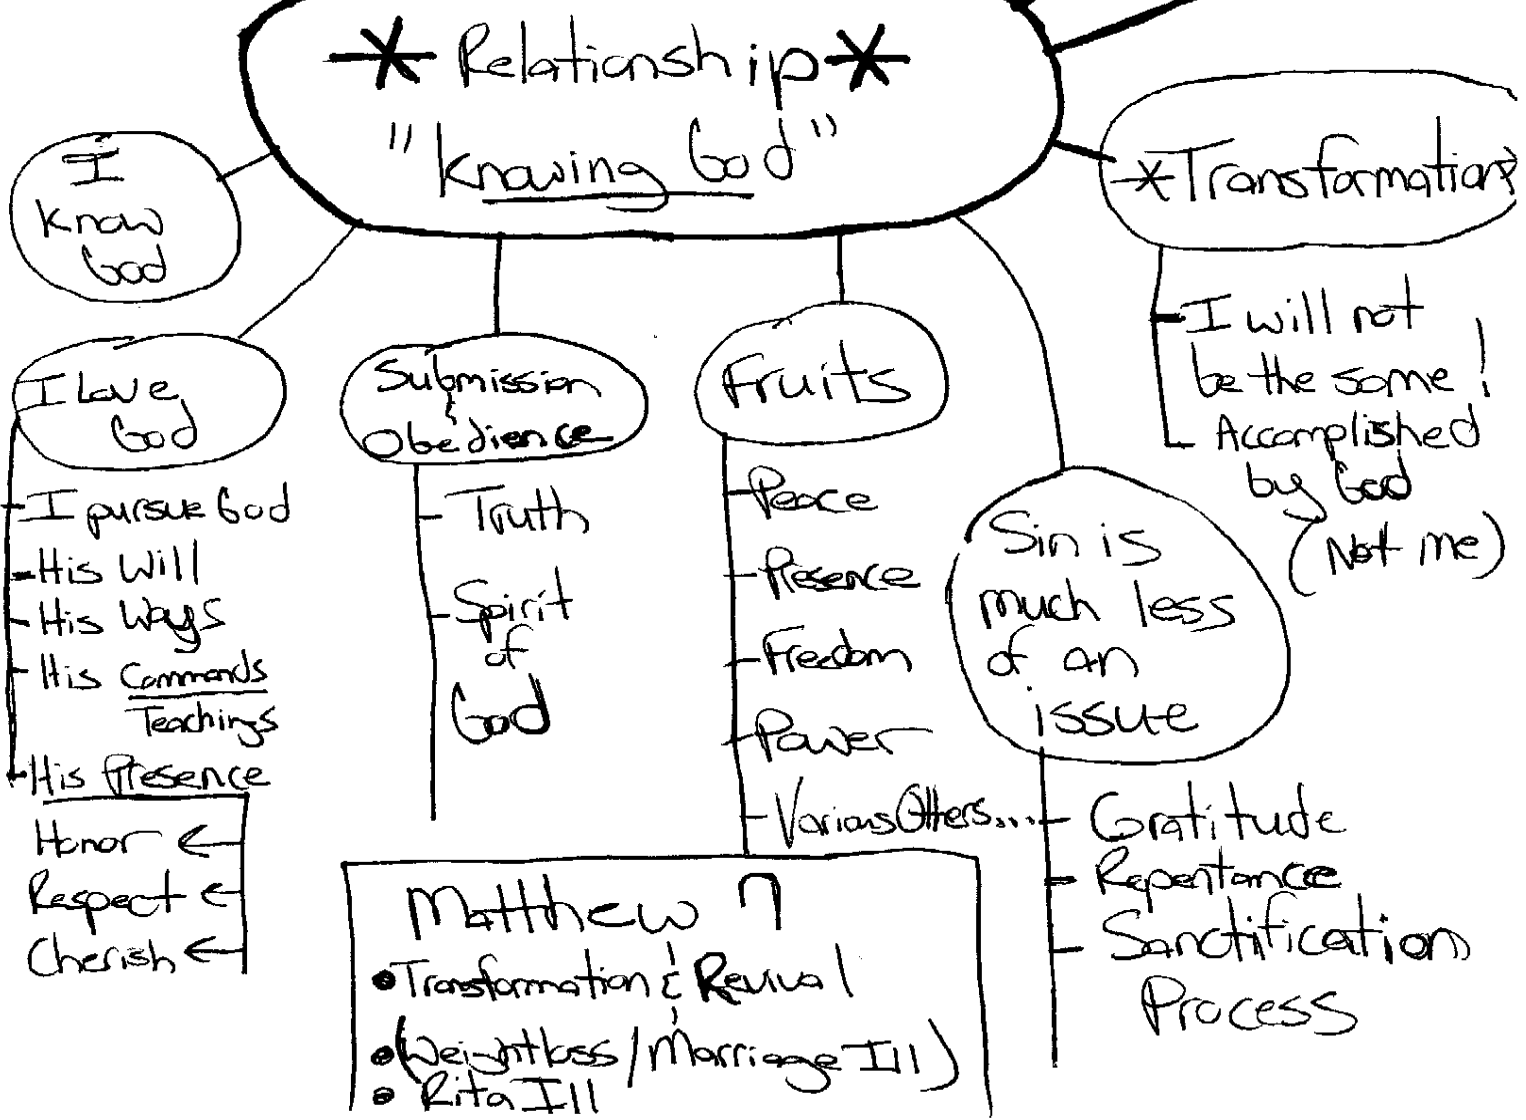 * Relationship *
"Knowing God"
I
know
God
*Transformation*
I will not
be the same!
Accomplished
by God
(Not me)
I Love
God
I pursue God
His Will
His Ways
His Commands
Teachings
His Presence
Honor ←
Respect ←
Cherish ←
Submission
&
Obedience
Truth
Spirit
of
God
Fruits
Peace
Presence
Freedom
Power
Various Others...
Sin is
much less
of an
issue
Gratitude
Repentance
Sanctification
Process
Matthew 7
• Transformation & Revival
• (Weightloss / Marriage Ill)
• Rita Ill